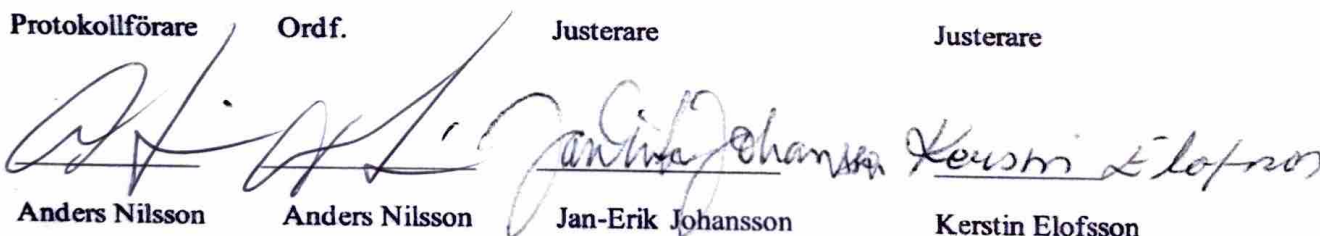 Protokollförare Ordf. Justerare Justerare
Jan-Erik Johansson Kerstin Elofsson
Anders Nilsson Anders Nilsson Jan-Erik Johansson Kerstin Elofsson